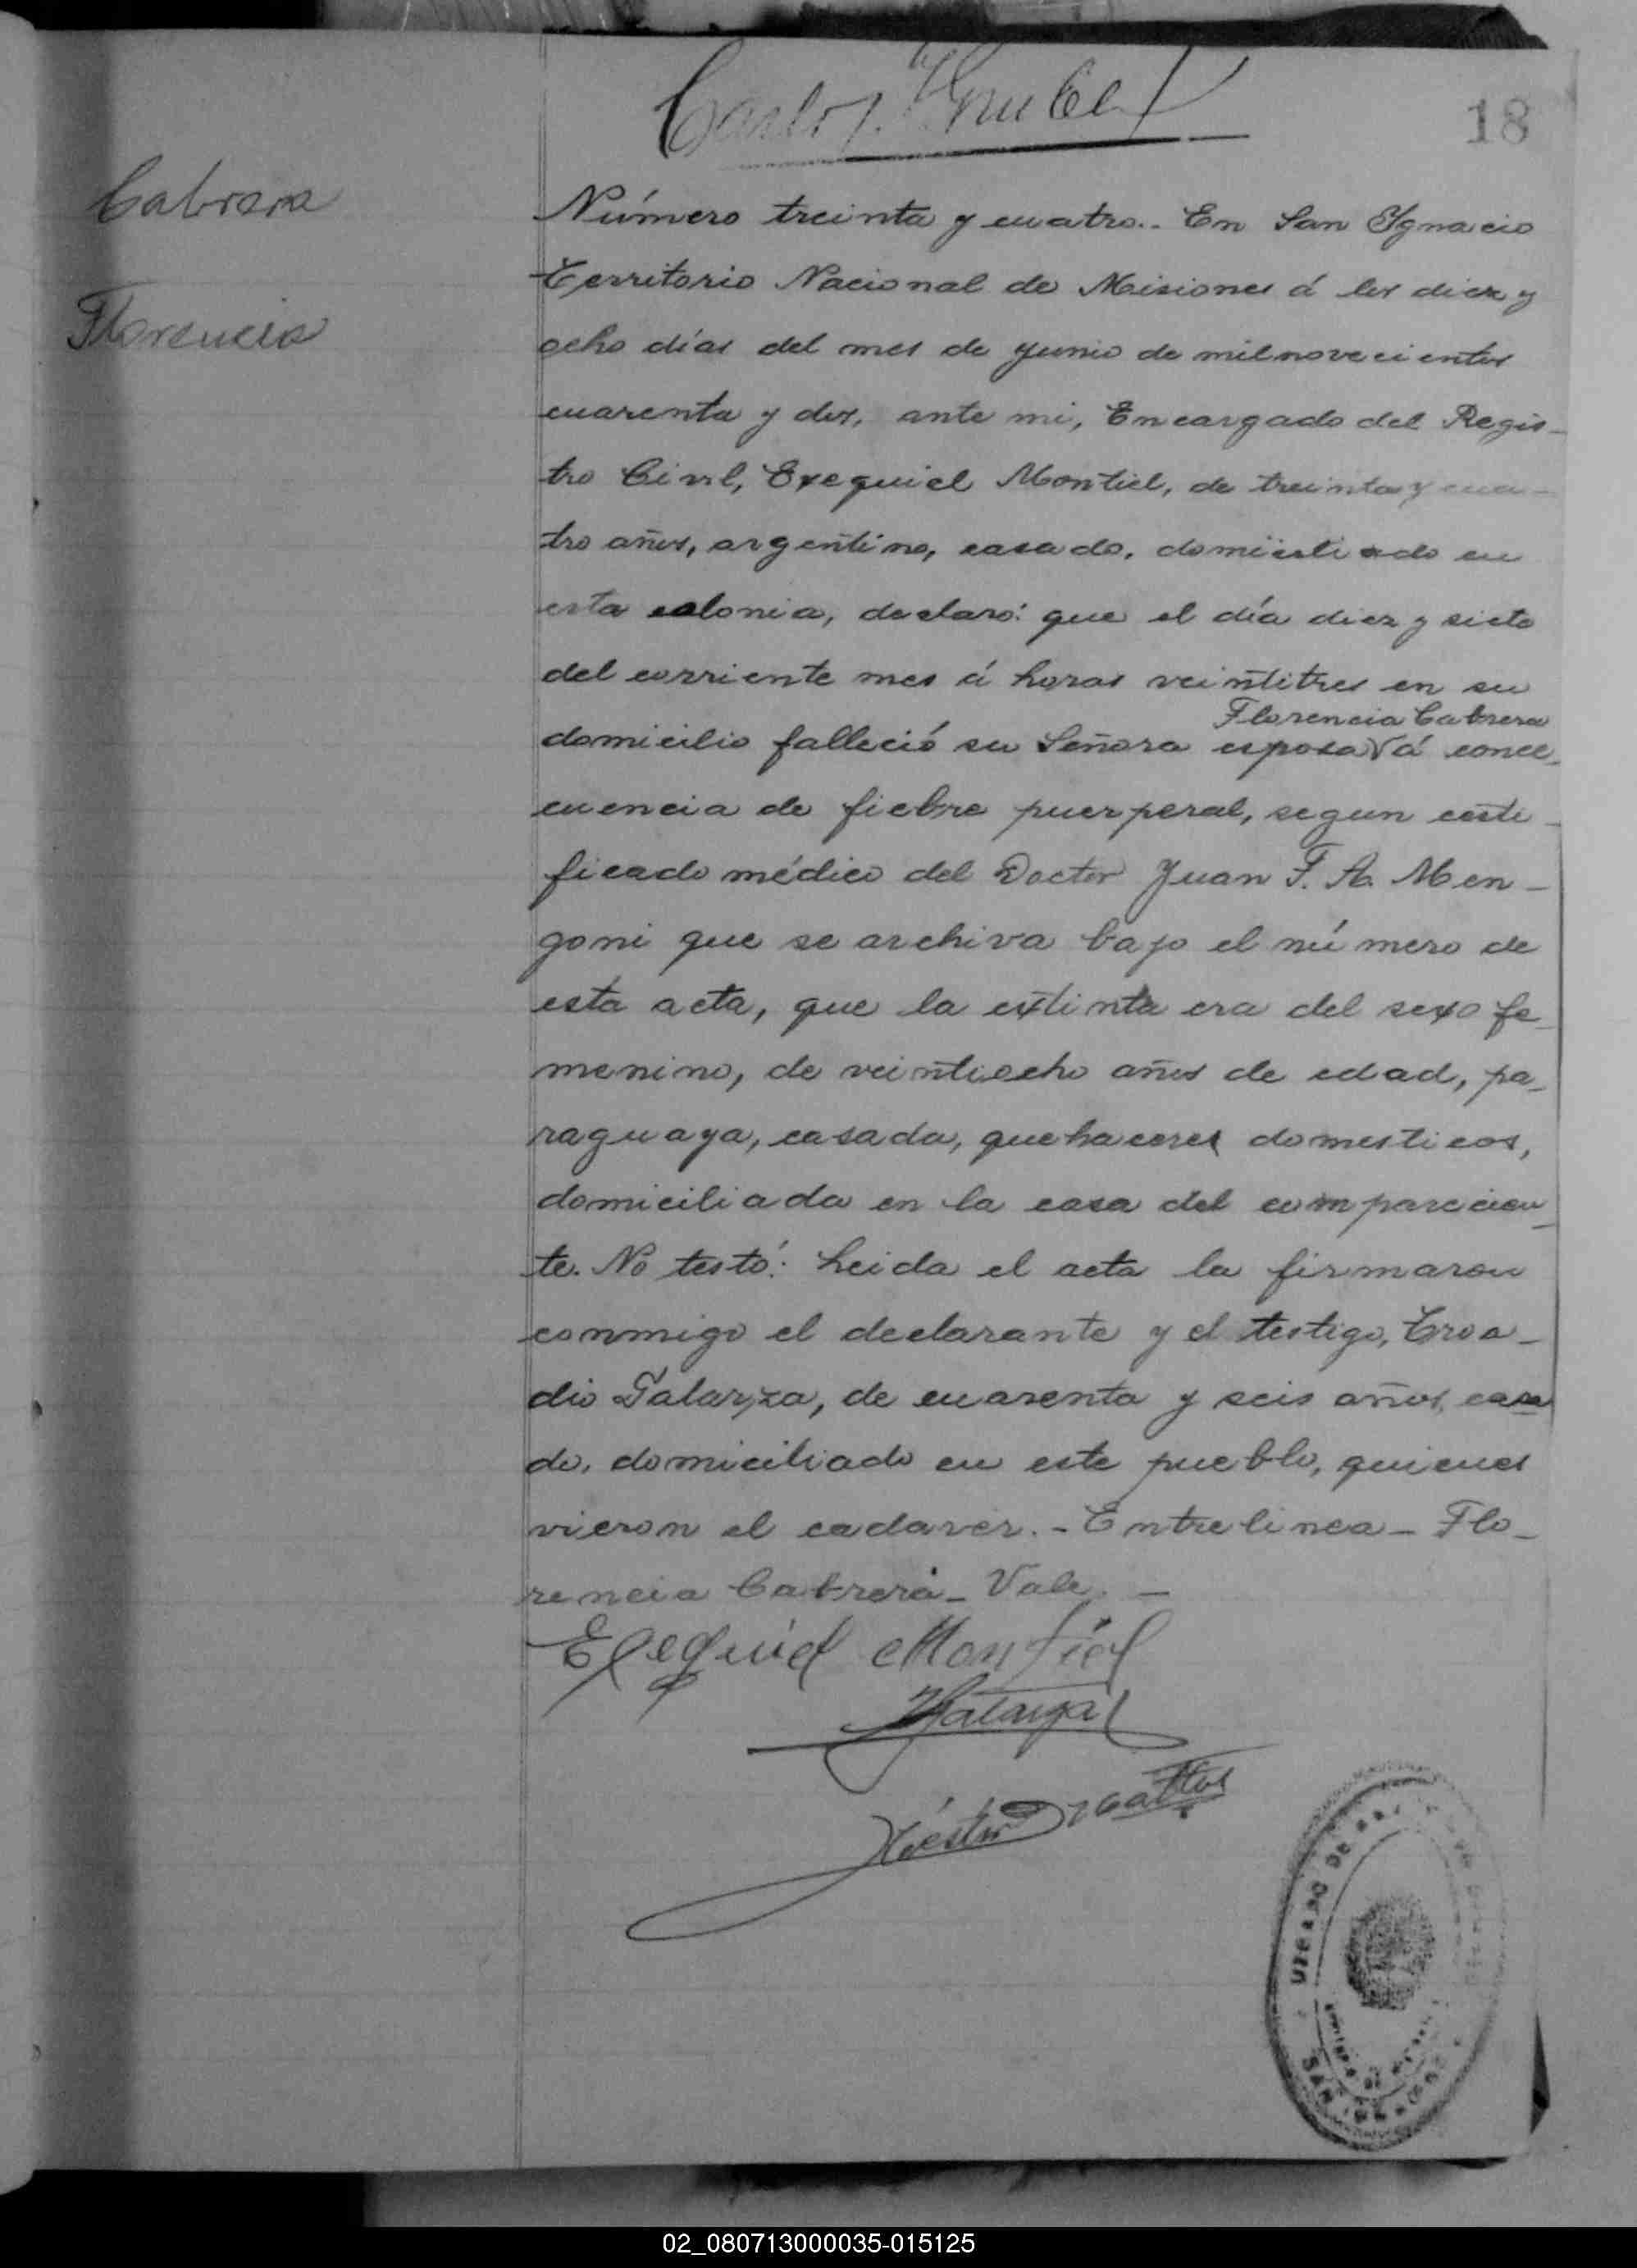 Carlos
18
Cabrera
Florencia
Número treinta y cuatro.- En San Ygnacio
Territorio Nacional de Misiones á los diez y
ocho días del mes de junio de milnovecientos
cuarenta y dos, ante mi, Encargado del Regis-
tro Civil, Exequiel Montiel, de treinta y cua-
tro años, argentino, casado, domiciliado en
esta colonia, declaró: que el día diez y siete
del corriente mes á horas veintitres en su
Florencia Cabrera
domicilio falleció su Señora esposa á conce-
cuencia de fiebre puerperal, segun certi-
ficado médico del Doctor Juan F. A. Men-
goni que se archiva bajo el número de
esta acta, que la extinta era del sexo fe-
menino, de veintiocho años de edad, pa-
raguaya, casada, quehaceres domesticos,
domiciliada en la casa del comparecien-
te. No testó: Leida el acta la firmaron
conmigo el declarante y el testigo, Troa-
dio Galarza, de cuarenta y seis años, casa
do, domiciliado en este pueblo, quienes
vieron el cadaver.- Entrelinea- Flo-
rencia Cabrera- Vale.-
Exequiel Montiel
Galarza
Néstor
02_080713000035-015125